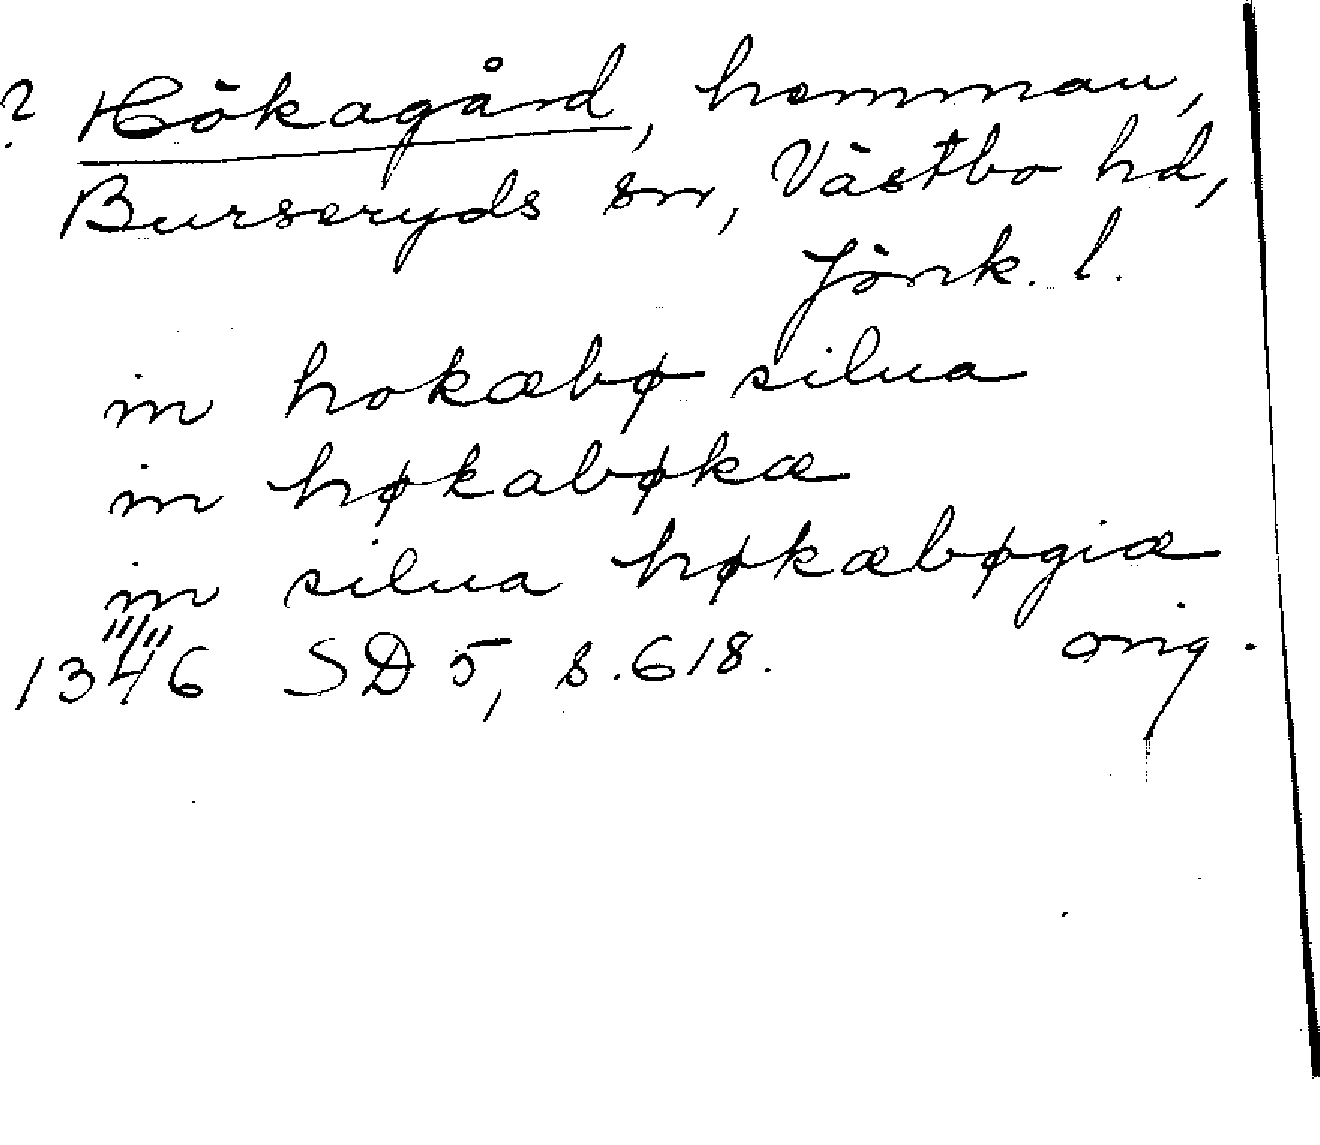 ? Hökagård, hemman,
Burseryds sn, Västbo hd,
Jönk. l.
in hokæbø silua
in høkabøkæ
in silua høkæbøgiæ
11/11
1346 SD 5, s. 618. orig.